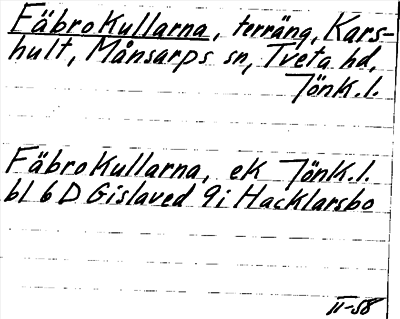 Fäbrokullarna, terräng, Kars-
hult, Månsarps sn, Tveta hd,
Jönk.l.
Fäbrokullarna, ek Jönk.l.
bl 6 D Gislaved 9i Hacklarsbo
II-58